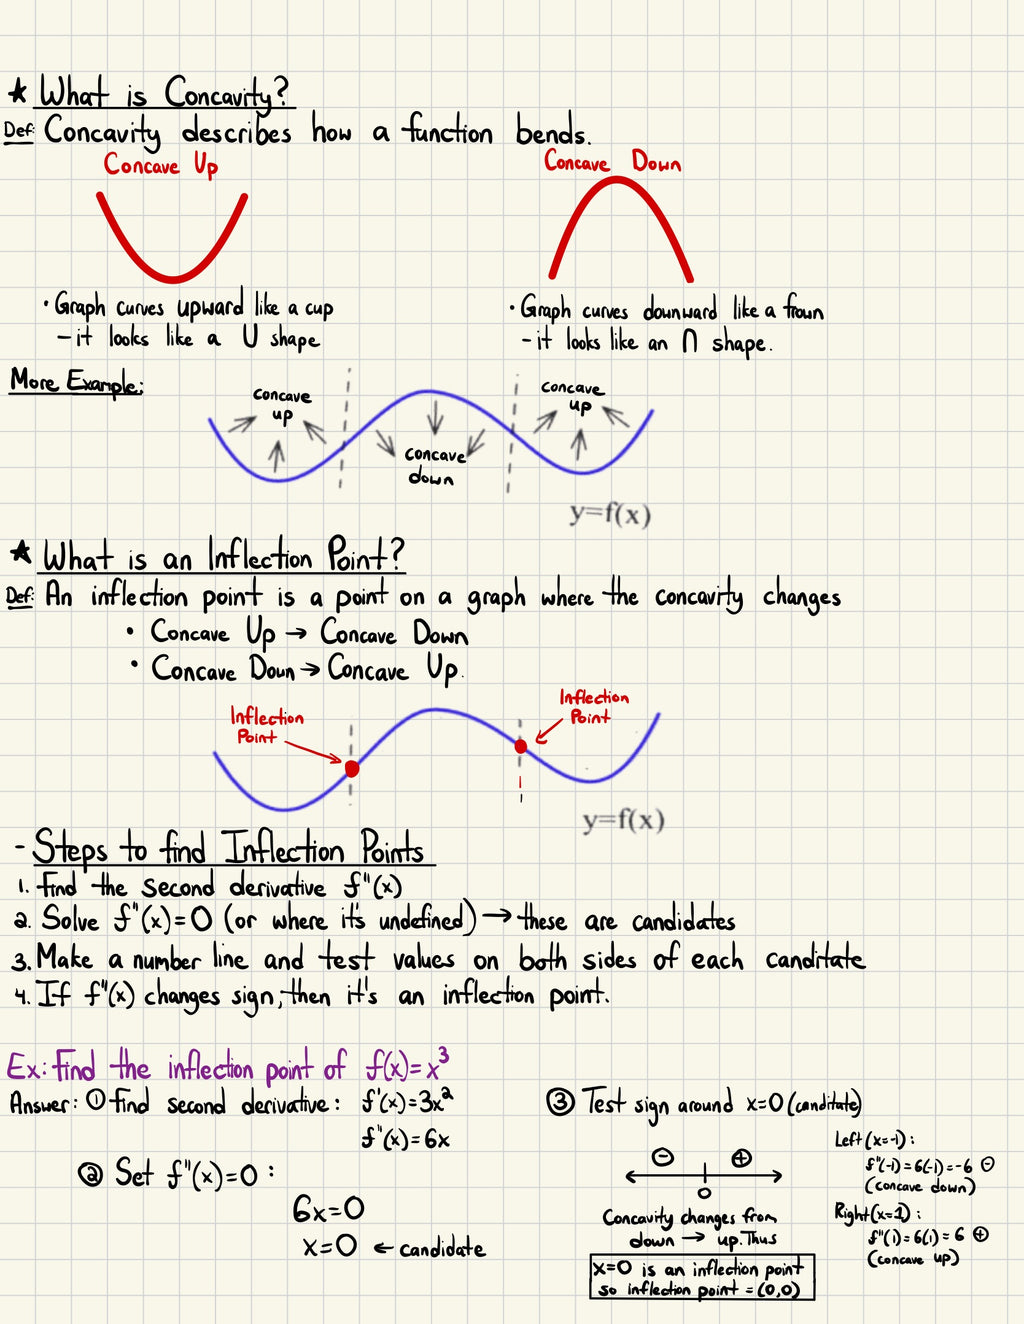 ★ What is Concavity?
Def: Concavity describes how a function bends.
Concave Up
Concave Down
• Graph curves upward like a cup
– it looks like a U shape
• Graph curves downward like a frown
– it looks like an ∩ shape.
More Example:
concave
up
concave
down
concave
up
y=f(x)
★ What is an Inflection Point?
Def: An inflection point is a point on a graph where the concavity changes
• Concave Up → Concave Down
• Concave Down → Concave Up.
Inflection
Point
Inflection
Point
y=f(x)
- Steps to find Inflection Points
1. Find the second derivative f"(x)
2. Solve f"(x)=0 (or where it's undefined) → these are candidates
3. Make a number line and test values on both sides of each canditate
4. If f"(x) changes sign, then it's an inflection point.
Ex: Find the inflection point of f(x)=x³
Answer: ① Find second derivative: f'(x)=3x²
f"(x)=6x
② Set f"(x)=0:
6x=0
x=0 ← candidate
③ Test sign around x=0 (canditate)
⊖ ⊕
0
Concavity changes from
down → up. Thus
x=0 is an inflection point
so inflection point = (0,0)
Left (x=-1):
f"(-1)=6(-1)=-6 ⊖
(concave down)
Right (x=1):
f"(1)=6(1)=6 ⊕
(concave up)